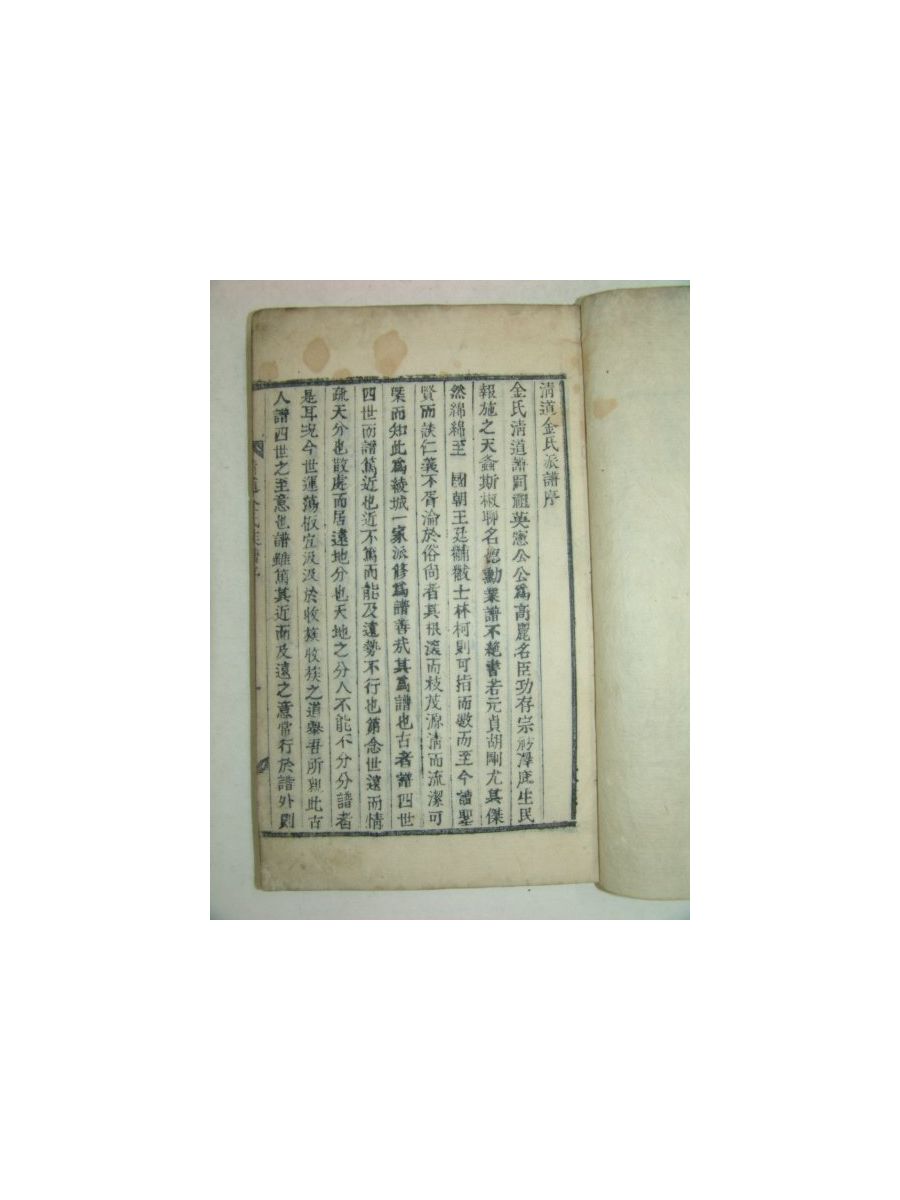 清道金氏派譜序
金氏淸道譜同祖英憲公公爲高麗名臣功存宗祊澤庇生民
報施之天螽斯椒聊名德勳業譜不絶書若元貞胡剛尤其傑
然綿綿至 國朝王廷黼黻士林柯則可指而數而至今譜聖
賢而訣仁義不胥淪於俗尙者其根深而枝茂源淸而流潔可
槩而知此爲綾城一家派修爲譜善哉其爲譜也古者譜四世
四世而譜篤近也近不篤而能及遠勢不行也第念世遠而情
疏天分也散處而居遠地分也天地之分人不能不分分譜者
是耳况今世運蕩板宜汲汲於收族收族之道擧吾所 此古
人譜四世之至意也譜雖篤其近而及遠之意常行於譜外則